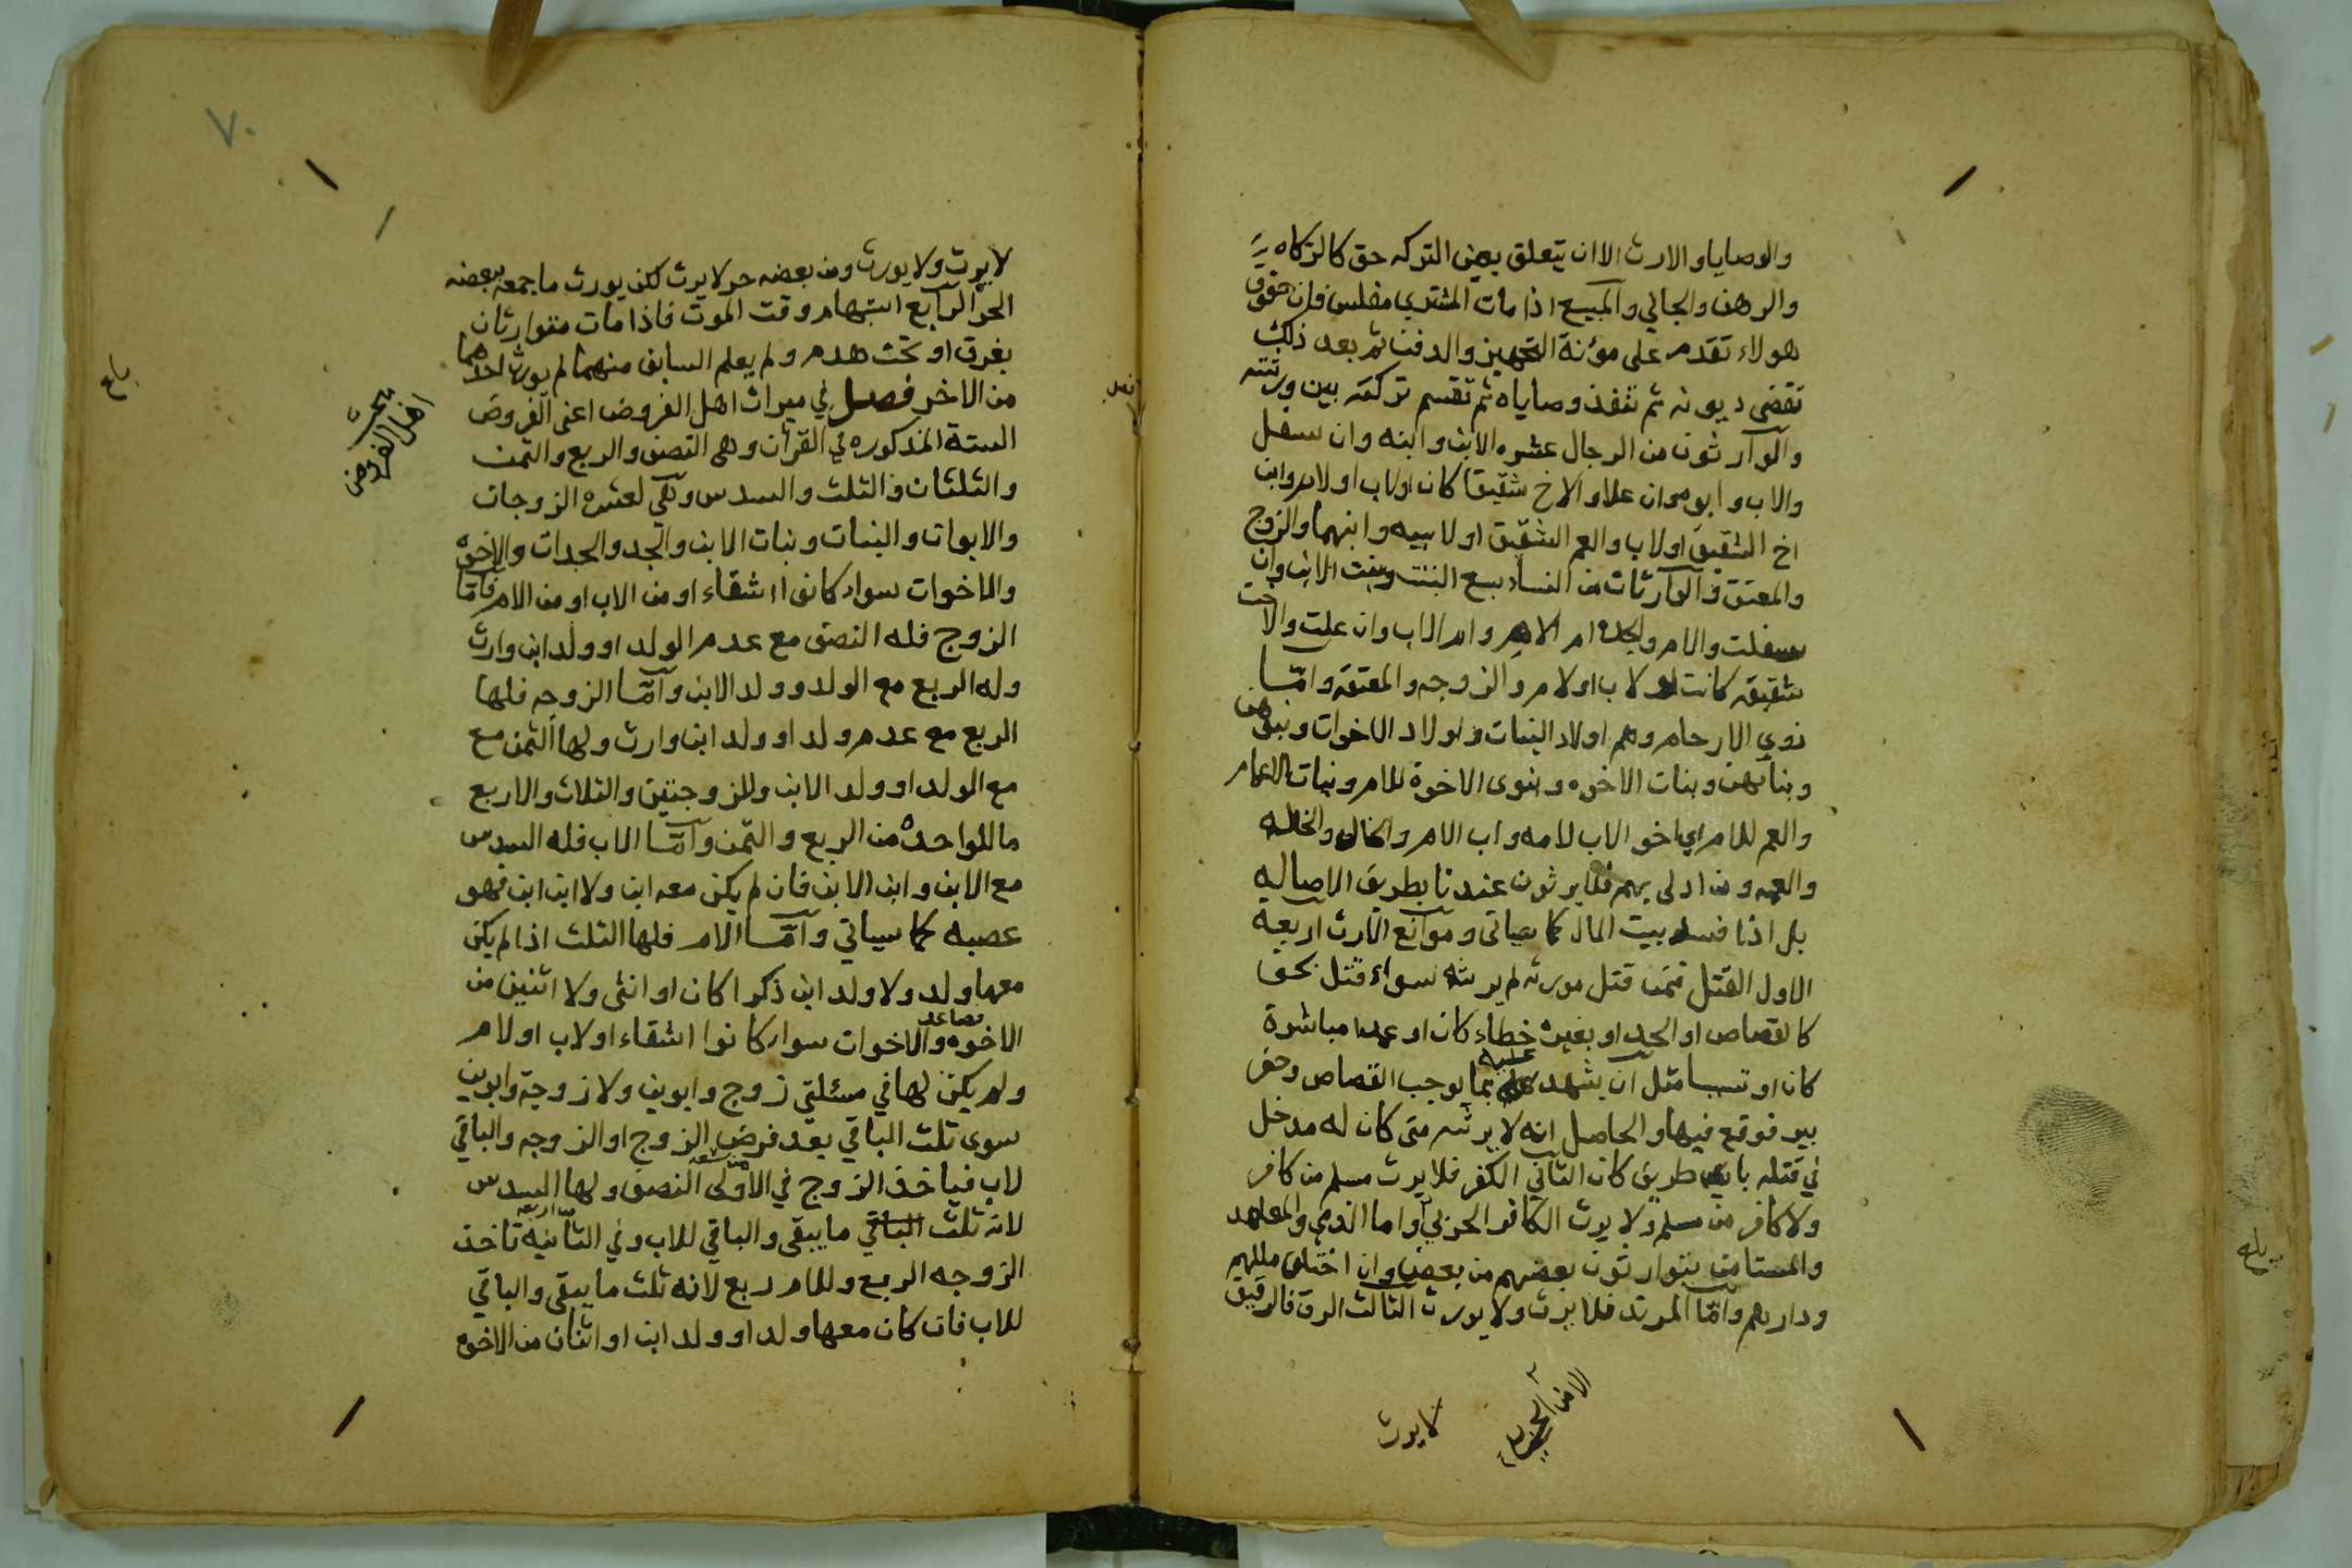 والوصايا والارث الا ان يتعلق بعين التركه حق كالزكاه
والرهن والجاني والمبيع اذا مات المشتري مفلس فان حقوق
هولاء تقدم على مؤنة التجهيز والدفن ثم بعد ذلك
تقضى ديونه ثم تنفذ وصاياه ثم تقسم تركته بين ورثته
والوارثون من الرجال عشره الابن وابنه وان سفل
والاب وابوه وان علا والاخ شقيقا كان او لاب او لام وابن
اخ الشقيق او لاب والعم الشقيق او لابيه وابنهما والزوج
والمعتق والوارثات من النساء سبع البنت وبنت الابن وان
سفلت والام والجده ام الام وام الاب وان علت والاخت
شقيقه كانت او لاب او لام والزوجه والمعتقه وامّا
ذوي الارحام وهم اولاد البنات واولاد الاخوات وبنوهن
وبناتهن وبنات الاخوه وبنوى الاخوة للام وبنات الاعمام
والعم للام اي اخو الاب لامه واب الام والخال والخاله
والعمه ومن ادلى بهم فلا يرثون عندنا بطريق الاصاليه
بل اذا فسد بيت المال كما سياتى وموانع الارث اربعة
الاول القتل فمن قتل مورثه لم يرثه سواء قتل بحق
كالقصاص او الحد او بغيره خطاء كان او عمدا مباشرة
كان او تسببا مثل ان يشهد عليه بما يوجب القصاص وحفر
بير فوقع فيها والحاصل انه لا يرثه متى كان له مدخل
في قتله باي طريق كان الثاني الكفر فلا يرث مسلم من كافر
ولا كافر من مسلم ولا يورث الكافر الحربي واما الذمي والمعاهد
والمستامن يتوارثون بعضهم من بعض وان اختلف مللهم
ودارهم وامّا المرتد فلا يرث ولا يورث الثالث الرق فالرقيق
لا يرث
٧٠
لا يرث ولا يورث ومن بعضه حر لا يرث لكن يورث ما جمعه ببعضه
الحر الرابع استبهام وقت الموت فاذا مات متوارثان
بغرق او تحت هدم ولم يعلم السابق منهما لم يورث احدهما
من الاخر فصل في ميراث اهل الفروض اعنى الفروض
الستة المذكوره في القرأن وهى النصف والربع والثمن
والثلثان والثلث والسدس وهي لعشره الزوجان
والابوان والبنات وبنات الابن والجد والجدات والاخوه
والاخوات سواء كانوا اشقاء او من الاب او من الام فامّا
الزوج فله النصف مع عدم الولد او ولد ابن وارث
وله الربع مع الولد وولد الابن وامّا الزوجه فلها
الربع مع عدم ولد او ولد ابن وارث ولها الثمن مع
مع الولد او ولد الابن وللزوجتين والثلاث والاربع
ما للواحدة من الربع والثمن وامّا الاب فله السدس
مع الابن وابن الابن فان لم يكن معه ابن ولا ابن ابن فهو
عصبه كما سياتي وامّا الام فلها الثلث اذا لم يكن
معها ولد ولا ولد ابن ذكرا كان او انثى ولا اثنين من
فصاعد
الاخوه والاخوات سواء كانوا اشقاء او لاب او لام
ولم يكن لها في مسئلتى زوج وابوين ولا زوجة وابوين
سوى ثلث الباقي بعد فرض الزوج او الزوجه والباقي
لاب فياخذ الزوج في الاولى النصف ولها السدس
لانه ثلث الباقي ما يبقى والباقي للاب وفي الثانية تاخذ
الزوجه الربع وللام ربع لانه ثلث ما يبقى والباقي
للاب فان كان معها ولد او ولد ابن او اثنان من الاخوه
مبحث
اهل الفروض